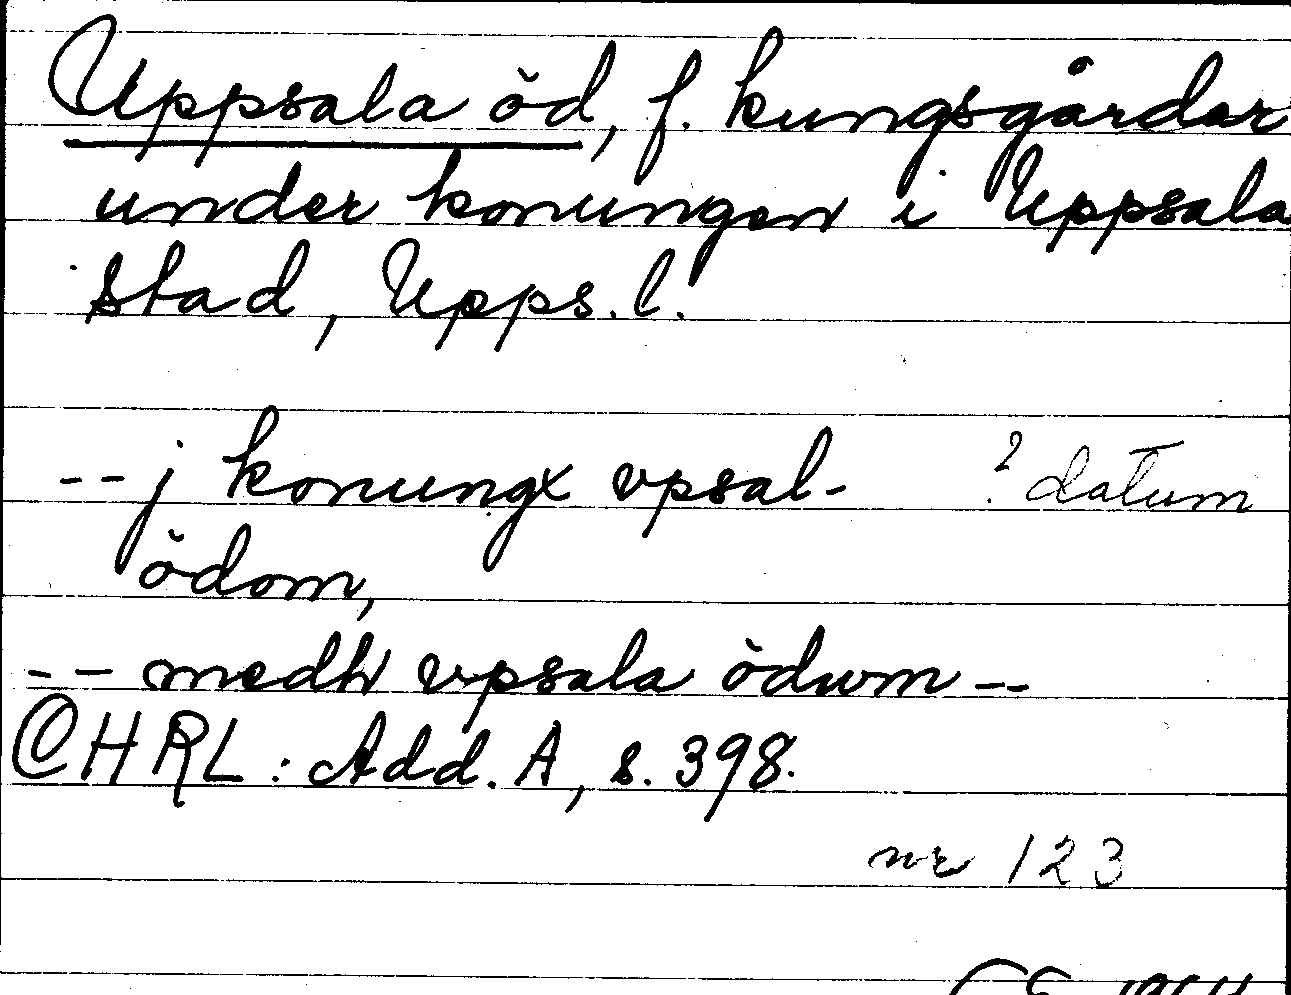 Uppsala öd, f. kungsgårdar
under konungen i Uppsala
stad, Upps. l.
-- j konungx vpsal- ? datum
ödom,
-- medh vpsala ödwm --
CHRL: Add. A, s. 398.
nr 123